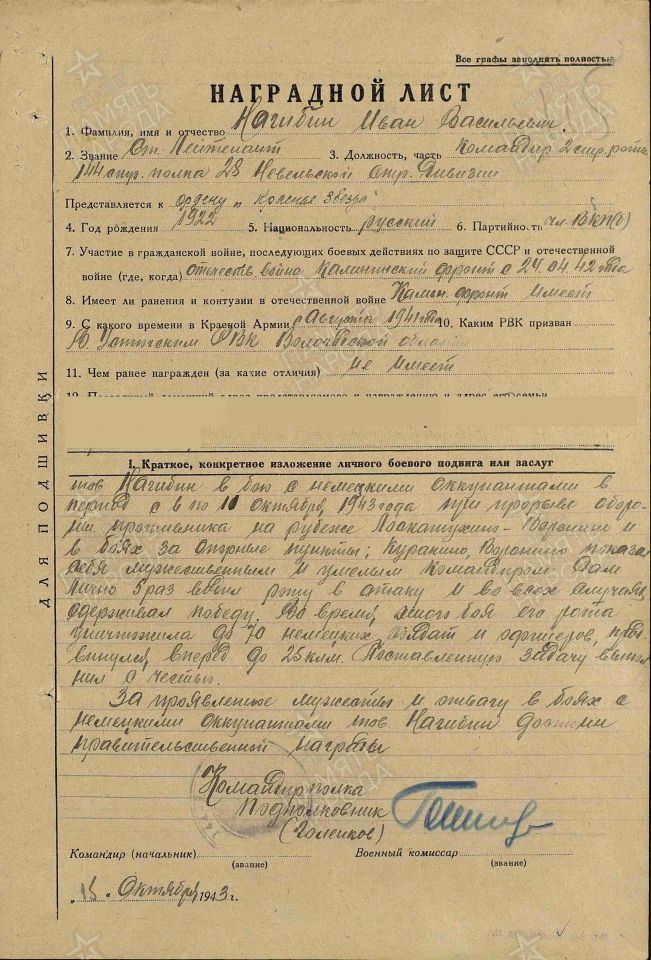 Все графы заполнять полностью
НАГРАДНОЙ ЛИСТ
1. Фамилия, имя и отчество Нагибин Иван Васильевич.
2. Звание Ст. Лейтенант 3. Должность, часть Командир 2 стр. роты
144 стр. полка 28 Невельской стр. Дивизии
Представляется к ордену „Красная Звезда"
4. Год рождения 1922 5. Национальность русский 6. Партийность чл. ВКП(б)
7. Участие в гражданской войне, последующих боевых действиях по защите СССР и отечественной
войне (где, когда) отечеств. война Калининский фронт с 24.04.42 года
8. Имеет ли ранения и контузии в отечественной войне Калин. фронт Имеет
9. С какого времени в Красной Армии с Августа 1941 года 10. Каким РВК призван
В. Устюгским РВК Вологодской области
11. Чем ранее награжден (за какие отличия) Не Имеет
I. Краткое, конкретное изложение личного боевого подвига или заслуг
тов Нагибин в бою с немецкими оккупантами в
период с 6 по 10 октября 1943 года при прорыве оборо-
ны противника на рубеже Воронино и
в боях за опорные пункты; Куракино, Воронино показал
себя мужественным и умелым Командиром. Сам
лично 5 раз водил роту в атаку и во всех случаях
одерживал победу. Во время этого боя его рота
уничтожила до 70 немецких солдат и офицеров, прод-
винулся вперед до 25 клм. Поставленную задачу выпол-
нил с честью.
За проявленное мужество и отвагу в боях с
немецкими оккупантами тов. Нагибин достоин
правительственной награды
Командир полка
Подполковник
(Голенков)
Командир (начальник) Военный комиссар
(звание) (звание)
Октября 1943 г.
ДЛЯ ПОДШИВКИ
ПАМЯТЬ НАРОДА